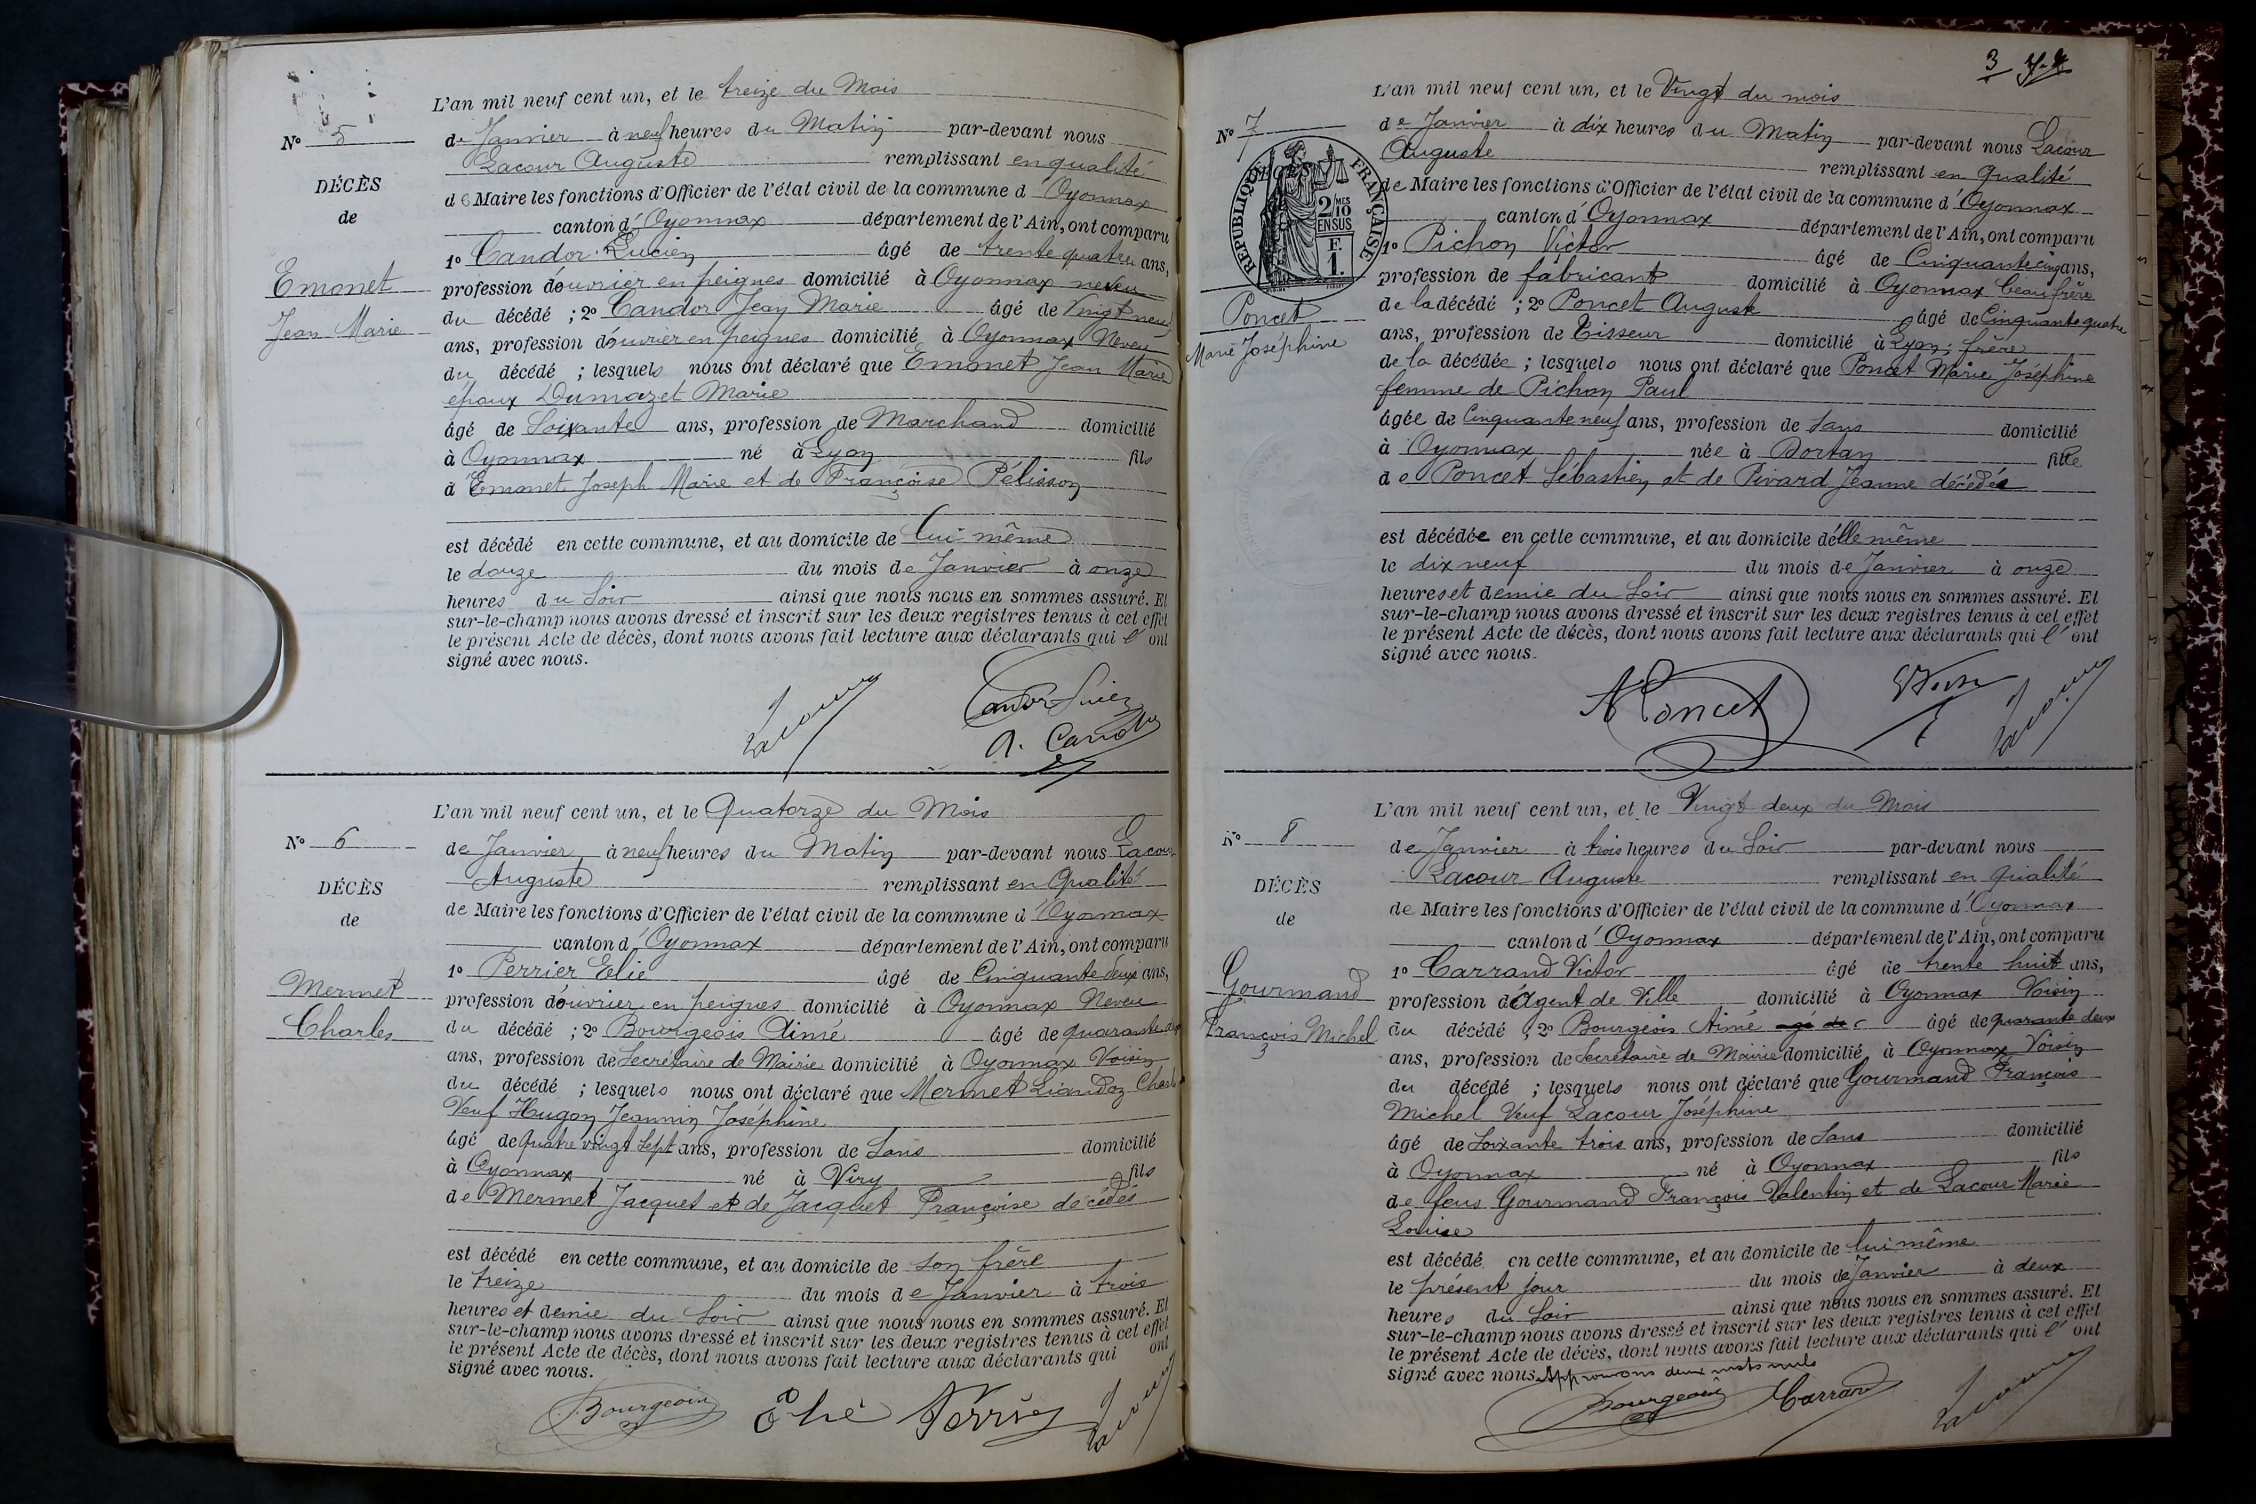 L'an mil neuf cent un, et le treize du Mois
N° 5
de Janvier à neuf heures du Matin par-devant nous
Lacour Auguste remplissant en qualité
DÉCÈS
de Maire les fonctions d'Officier de l'état civil de la commune d'Oyonnax
de
canton d'Oyonnax département de l'Ain, ont comparu
1° Candor Lucien âgé de trente quatre ans,
Emonet
profession d'ouvrier en peignes domicilié à Oyonnax neveu
Jean Marie
du décédé ; 2° Candor Jean Marie âgé de Vingt neuf
ans, profession d'ouvrier en peignes domicilié à Oyonnax Neveu
du décédé ; lesquels nous ont déclaré que Emonet Jean Marie
époux Dumazet Marie
âgé de Soixante ans, profession de Marchand domicilié
à Oyonnax né à Lyon fils
d Emonet Joseph Marie et de Françoise Pélisson
est décédé en cette commune, et au domicile de lui même
le douze du mois de Janvier à onze
heures du Soir ainsi que nous nous en sommes assuré. Et
sur-le-champ nous avons dressé et inscrit sur les deux registres tenus à cet effet
le présent Acte de décès, dont nous avons fait lecture aux déclarants qui l'ont
signé avec nous.
Lacour
L'an mil neuf cent un, et le Quatorze du Mois
N° 6
de Janvier à neuf heures du Matin par-devant nous Lacour
DÉCÈS
Auguste remplissant en Qualité
de
de Maire les fonctions d'Officier de l'état civil de la commune d'Oyonnax
canton d'Oyonnax département de l'Ain, ont comparu
1° Perrier Elie âgé de Cinquante deux ans,
Mermet
profession d'ouvrier en peignes domicilié à Oyonnax Neveu
Charles
du décédé ; 2° Bourgeois Aimé âgé de quarante deux
ans, profession de Secrétaire de Mairie domicilié à Oyonnax Voisin
du décédé ; lesquels nous ont déclaré que Mermet Liandoz Charles
Veuf Hugon Jeannin Joséphine
âgé de quatre vingt sept ans, profession de Sans domicilié
à Oyonnax né à Viry fils
de Mermet Jacquet et de Jacquet Françoise décédés
est décédé en cette commune, et au domicile de son frère
le treize du mois de Janvier à trois
heures et demie du Soir ainsi que nous nous en sommes assuré. Et
sur-le-champ nous avons dressé et inscrit sur les deux registres tenus à cet effet
le présent Acte de décès, dont nous avons fait lecture aux déclarants qui ont
signé avec nous.
Bourgeois Elie Perrier Lacour
3
L'an mil neuf cent un, et le Vingt du mois
N° 7
de Janvier à dix heures du Matin par-devant nous Lacour
Auguste remplissant en Qualité
RÉPUBLIQUE FRANÇAISE
2/10MES EN SUS
F. 1.
de Maire les fonctions d'Officier de l'état civil de la commune d'Oyonnax
canton d'Oyonnax département de l'Ain, ont comparu
1° Pichon Victor âgé de Cinquante cinq ans,
profession de fabricant domicilié à Oyonnax beau frère
Poncet
de la décédé ; 2° Poncet Auguste âgé de Cinquante quatre
Marie Joséphine
ans, profession de Tisseur domicilié à Lyon, frère
de la décédée ; lesquels nous ont déclaré que Poncet Marie Joséphine
femme de Pichon Paul
âgée de Cinquante neuf ans, profession de Sans domicilié
à Oyonnax née à Dortan fille
de Poncet Sébastien et de Pivard Jeanne décédés
est décédée en cette commune, et au domicile d'elle même
le dix neuf du mois de Janvier à onze
heures et demie du Soir ainsi que nous nous en sommes assuré. Et
sur-le-champ nous avons dressé et inscrit sur les deux registres tenus à cet effet
le présent Acte de décès, dont nous avons fait lecture aux déclarants qui l'ont
signé avec nous.
A Poncet Lacour
L'an mil neuf cent un, et le Vingt deux du Mois
N° 8
de Janvier à trois heures du Soir par-devant nous
DÉCÈS
Lacour Auguste remplissant en qualité
de
de Maire les fonctions d'Officier de l'état civil de la commune d'Oyonnax
canton d'Oyonnax département de l'Ain, ont comparu
Gourmand
1° Carrand Victor âgé de trente huit ans,
François Michel
profession d'Agent de Ville domicilié à Oyonnax Voisin
du décédé ; 2° Bourgeois Aimé âgé de âgé de quarante deux
ans, profession de Secrétaire de Mairie domicilié à Oyonnax Voisin
du décédé ; lesquels nous ont déclaré que Gourmand François
Michel Veuf Lacour Joséphine
âgé de Soixante trois ans, profession de Sans domicilié
à Oyonnax né à Oyonnax fils
de feus Gourmand François Valentin et de Lacour Marie
Louise
est décédé en cette commune, et au domicile de lui même
le présent jour du mois de Janvier à deux
heures du Soir ainsi que nous nous en sommes assuré. Et
sur-le-champ nous avons dressé et inscrit sur les deux registres tenus à cet effet
le présent Acte de décès, dont nous avons fait lecture aux déclarants qui l'ont
signé avec nous. Approuvons deux mots nuls
Bourgeois Carrand Lacour